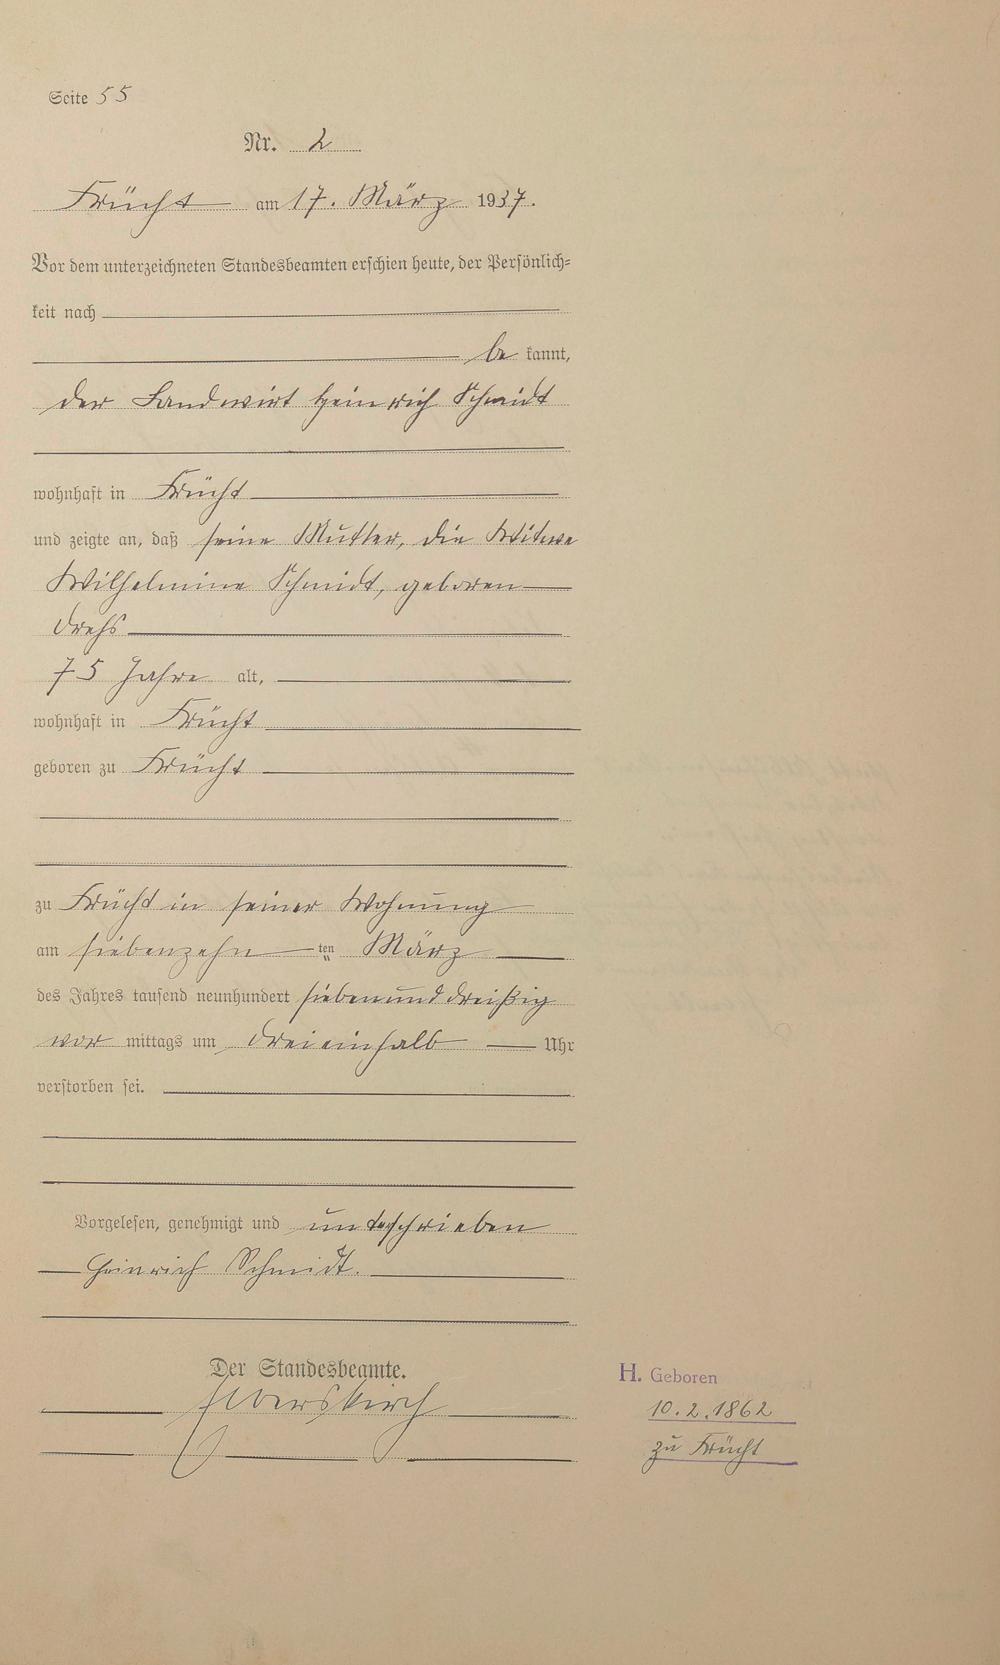 Seite 55
Nr. 2
Frücht am 17. März 1937.
Vor dem unterzeichneten Standesbeamten erschien heute, der Persönlich=
keit nach
be kannt,
der Landwirt Heinrich Schmidt
wohnhaft in Frücht
und zeigte an, daß seine Mutter, die Witwe
Wilhelmine Schmidt, geboren
75 Jahre alt,
wohnhaft in Frücht
geboren zu Frücht
zu Frücht in seiner Wohnung
am siebenzehn ten März
des Jahres tausend neunhundert siebenunddreißig
vor mittags um dreieinhalb Uhr
verstorben sei.
Vorgelesen, genehmigt und unterschrieben
Heinrich Schmidt.
Der Standesbeamte.
H. Geboren
10.2.1862
zu Frücht